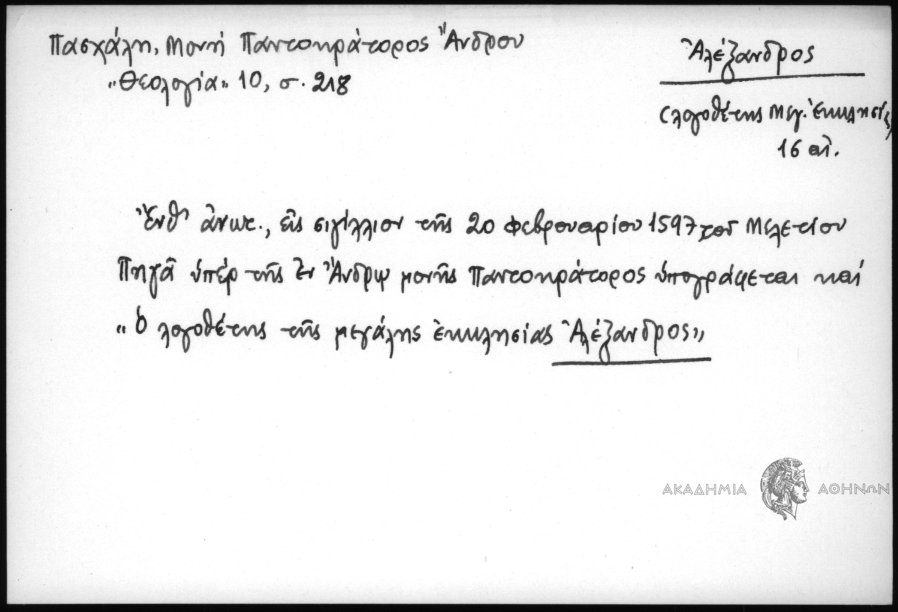 Πασχάλη, Μονή Παντοκράτορος Ἄνδρου
"Θεολογία" 10, σ. 218
Ἀλέξανδρος
(λογοθέτης Μεγ. Ἐκκλησίας)
16 αἰ.
Ἔνθ' ἀνωτ., εἰς σιγίλλιον τῆς 20 Φεβρουαρίου 1597 τοῦ Μελετίου
Πηγᾶ ὑπέρ τῆς ἐν Ἄνδρῳ μονῆς Παντοκράτορος ὑπογράφεται καί
"ὁ λογοθέτης τῆς μεγάλης ἐκκλησίας Ἀλέξανδρος"
ΑΚΑΔΗΜΙΑ ΑΘΗΝΩΝ